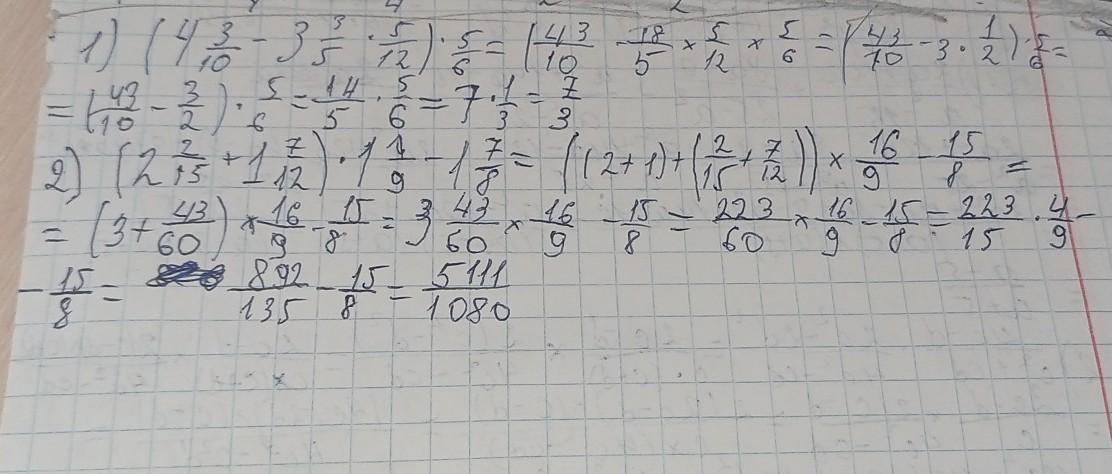 1) (4 3/10 - 3 3/5 · 5/12) · 5/6 = (43/10 - 18/5 × 5/12 × 5/6 = (43/10 - 3 · 1/2) · 5/6 =
= (43/10 - 3/2) · 5/6 = 14/5 · 5/6 = 7 · 1/3 = 7/3
2) (2 2/15 + 1 7/12) · 1 7/9 - 1 7/8 = ((2+1) + (2/15 + 7/12)) × 16/9 - 15/8 =
= (3 + 43/60) × 16/9 - 15/8 = 3 43/60 × 16/9 - 15/8 = 223/60 × 16/9 - 15/8 = 223/15 · 4/9 -
- 15/8 = 892/135 - 15/8 = 5111/1080